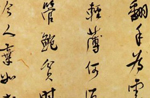 翻手為雲
輕薄何須
管鮑貧時
今人棄如